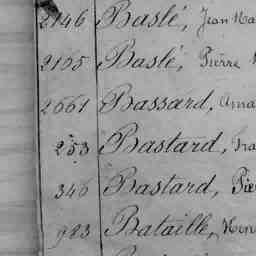 2146 Baslé, Jean
2165 Baslé, Pierre
2661 Bassard,
253 Bastard,
346 Bastard,
983 Bataille,